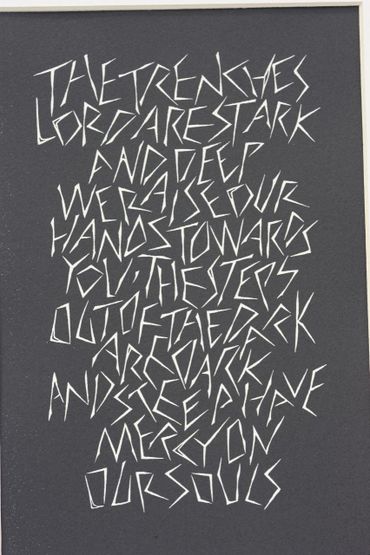 THE TRENCHES
LORD ARE STARK
AND DEEP
WE RAISE OUR
HANDS TOWARDS
YOU · THE STEPS
OUT OF THE DARK
ARE DARK
AND STEEP HAVE
MERCY ON
OUR SOULS